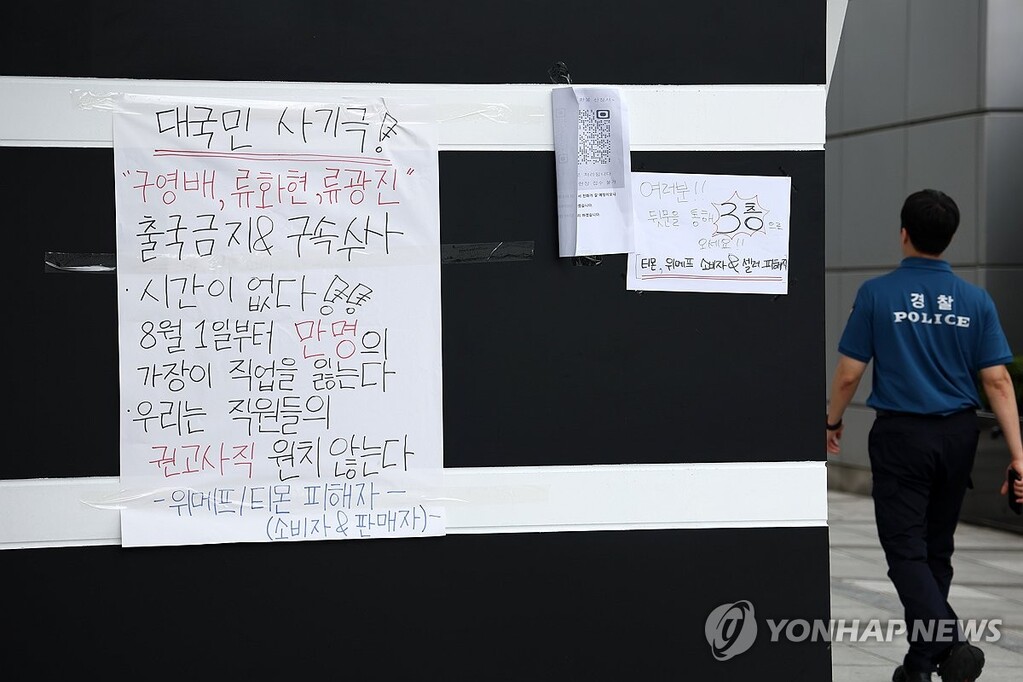 대국민 사기극!
"구영배, 류화현, 류광진"
출국금지& 구속수사
· 시간이 없다!!!
8월 1일부터 만명의
가장이 직업을 잃는다
· 우리는 직원들의
권고사직 원치 않는다
- 위메프/티몬 피해자 -
(소비자 & 판매자)-
여러분!!
뒷문을 통해 3층으로
오세요!!
티몬, 위메프 소비자 & 셀러 피해자
경찰
POLICE
YONHAP NEWS